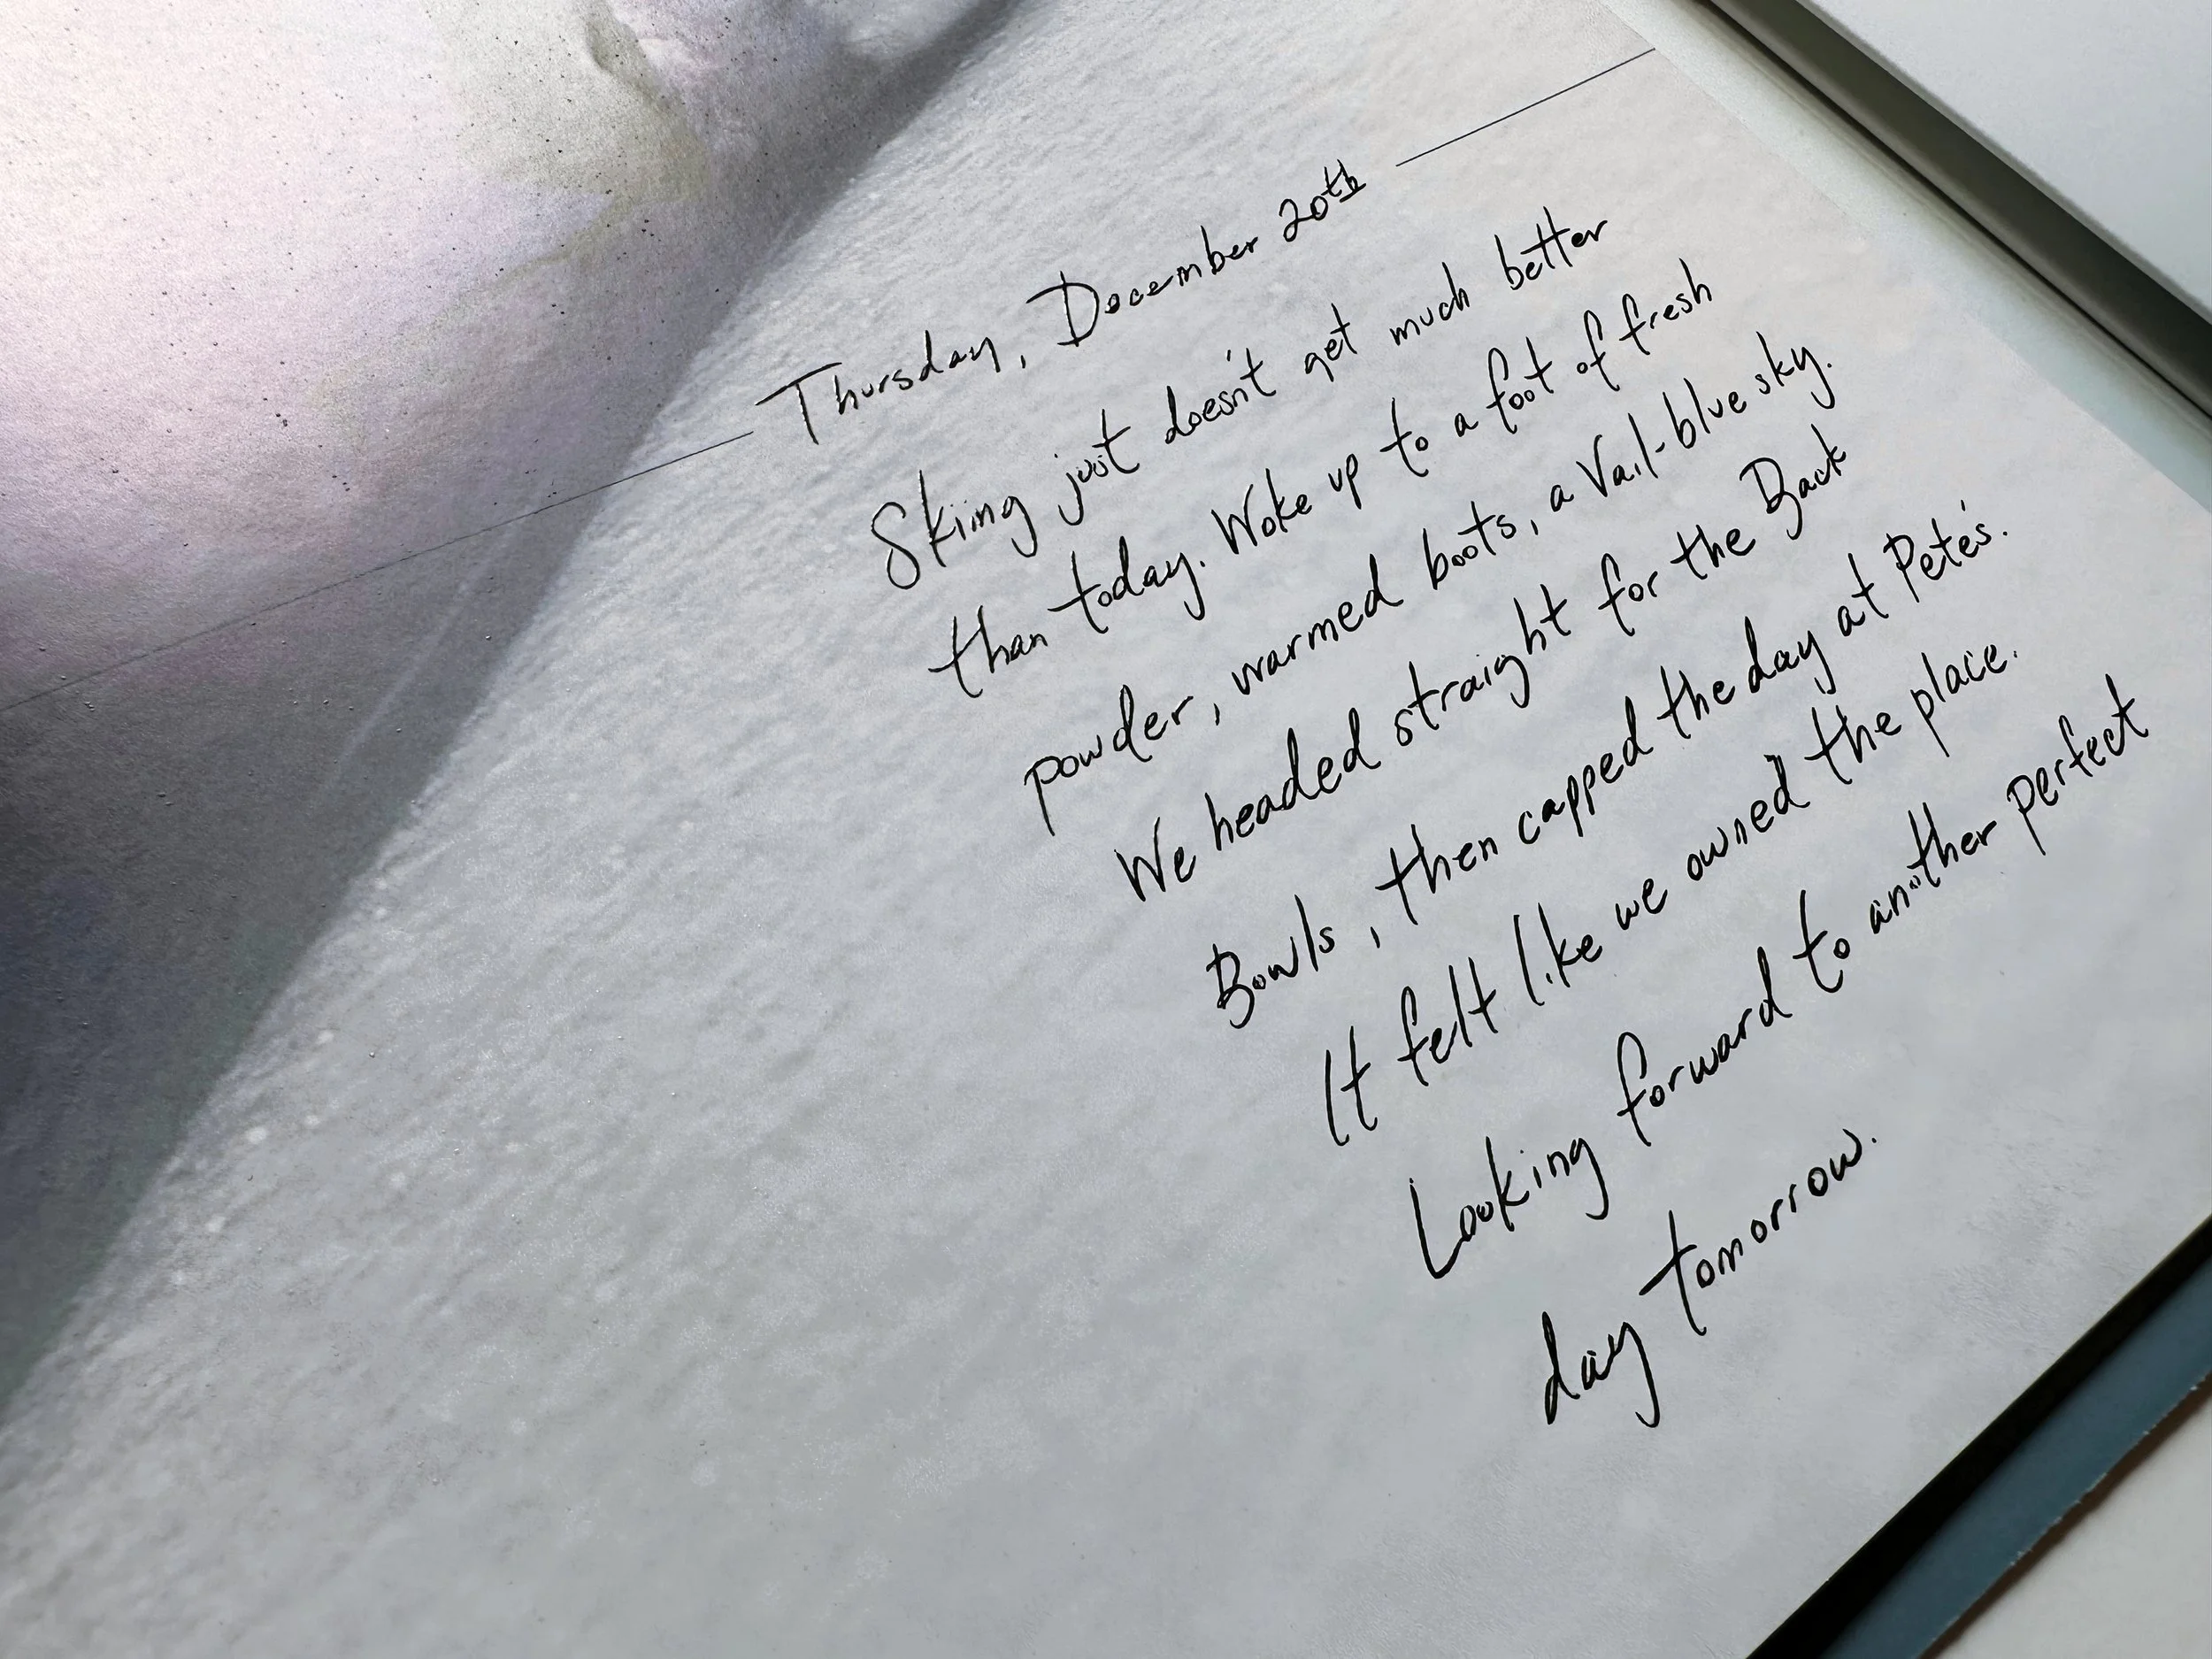 Thursday, December 20th
Skiing just doesn't get much better
than today. Woke up to a foot of fresh
powder, warmed boots, a Vail-blue sky.
We headed straight for the Back
Bowls, then capped the day at Pete's.
It felt like we owned the place.
Looking forward to another perfect
day tomorrow.